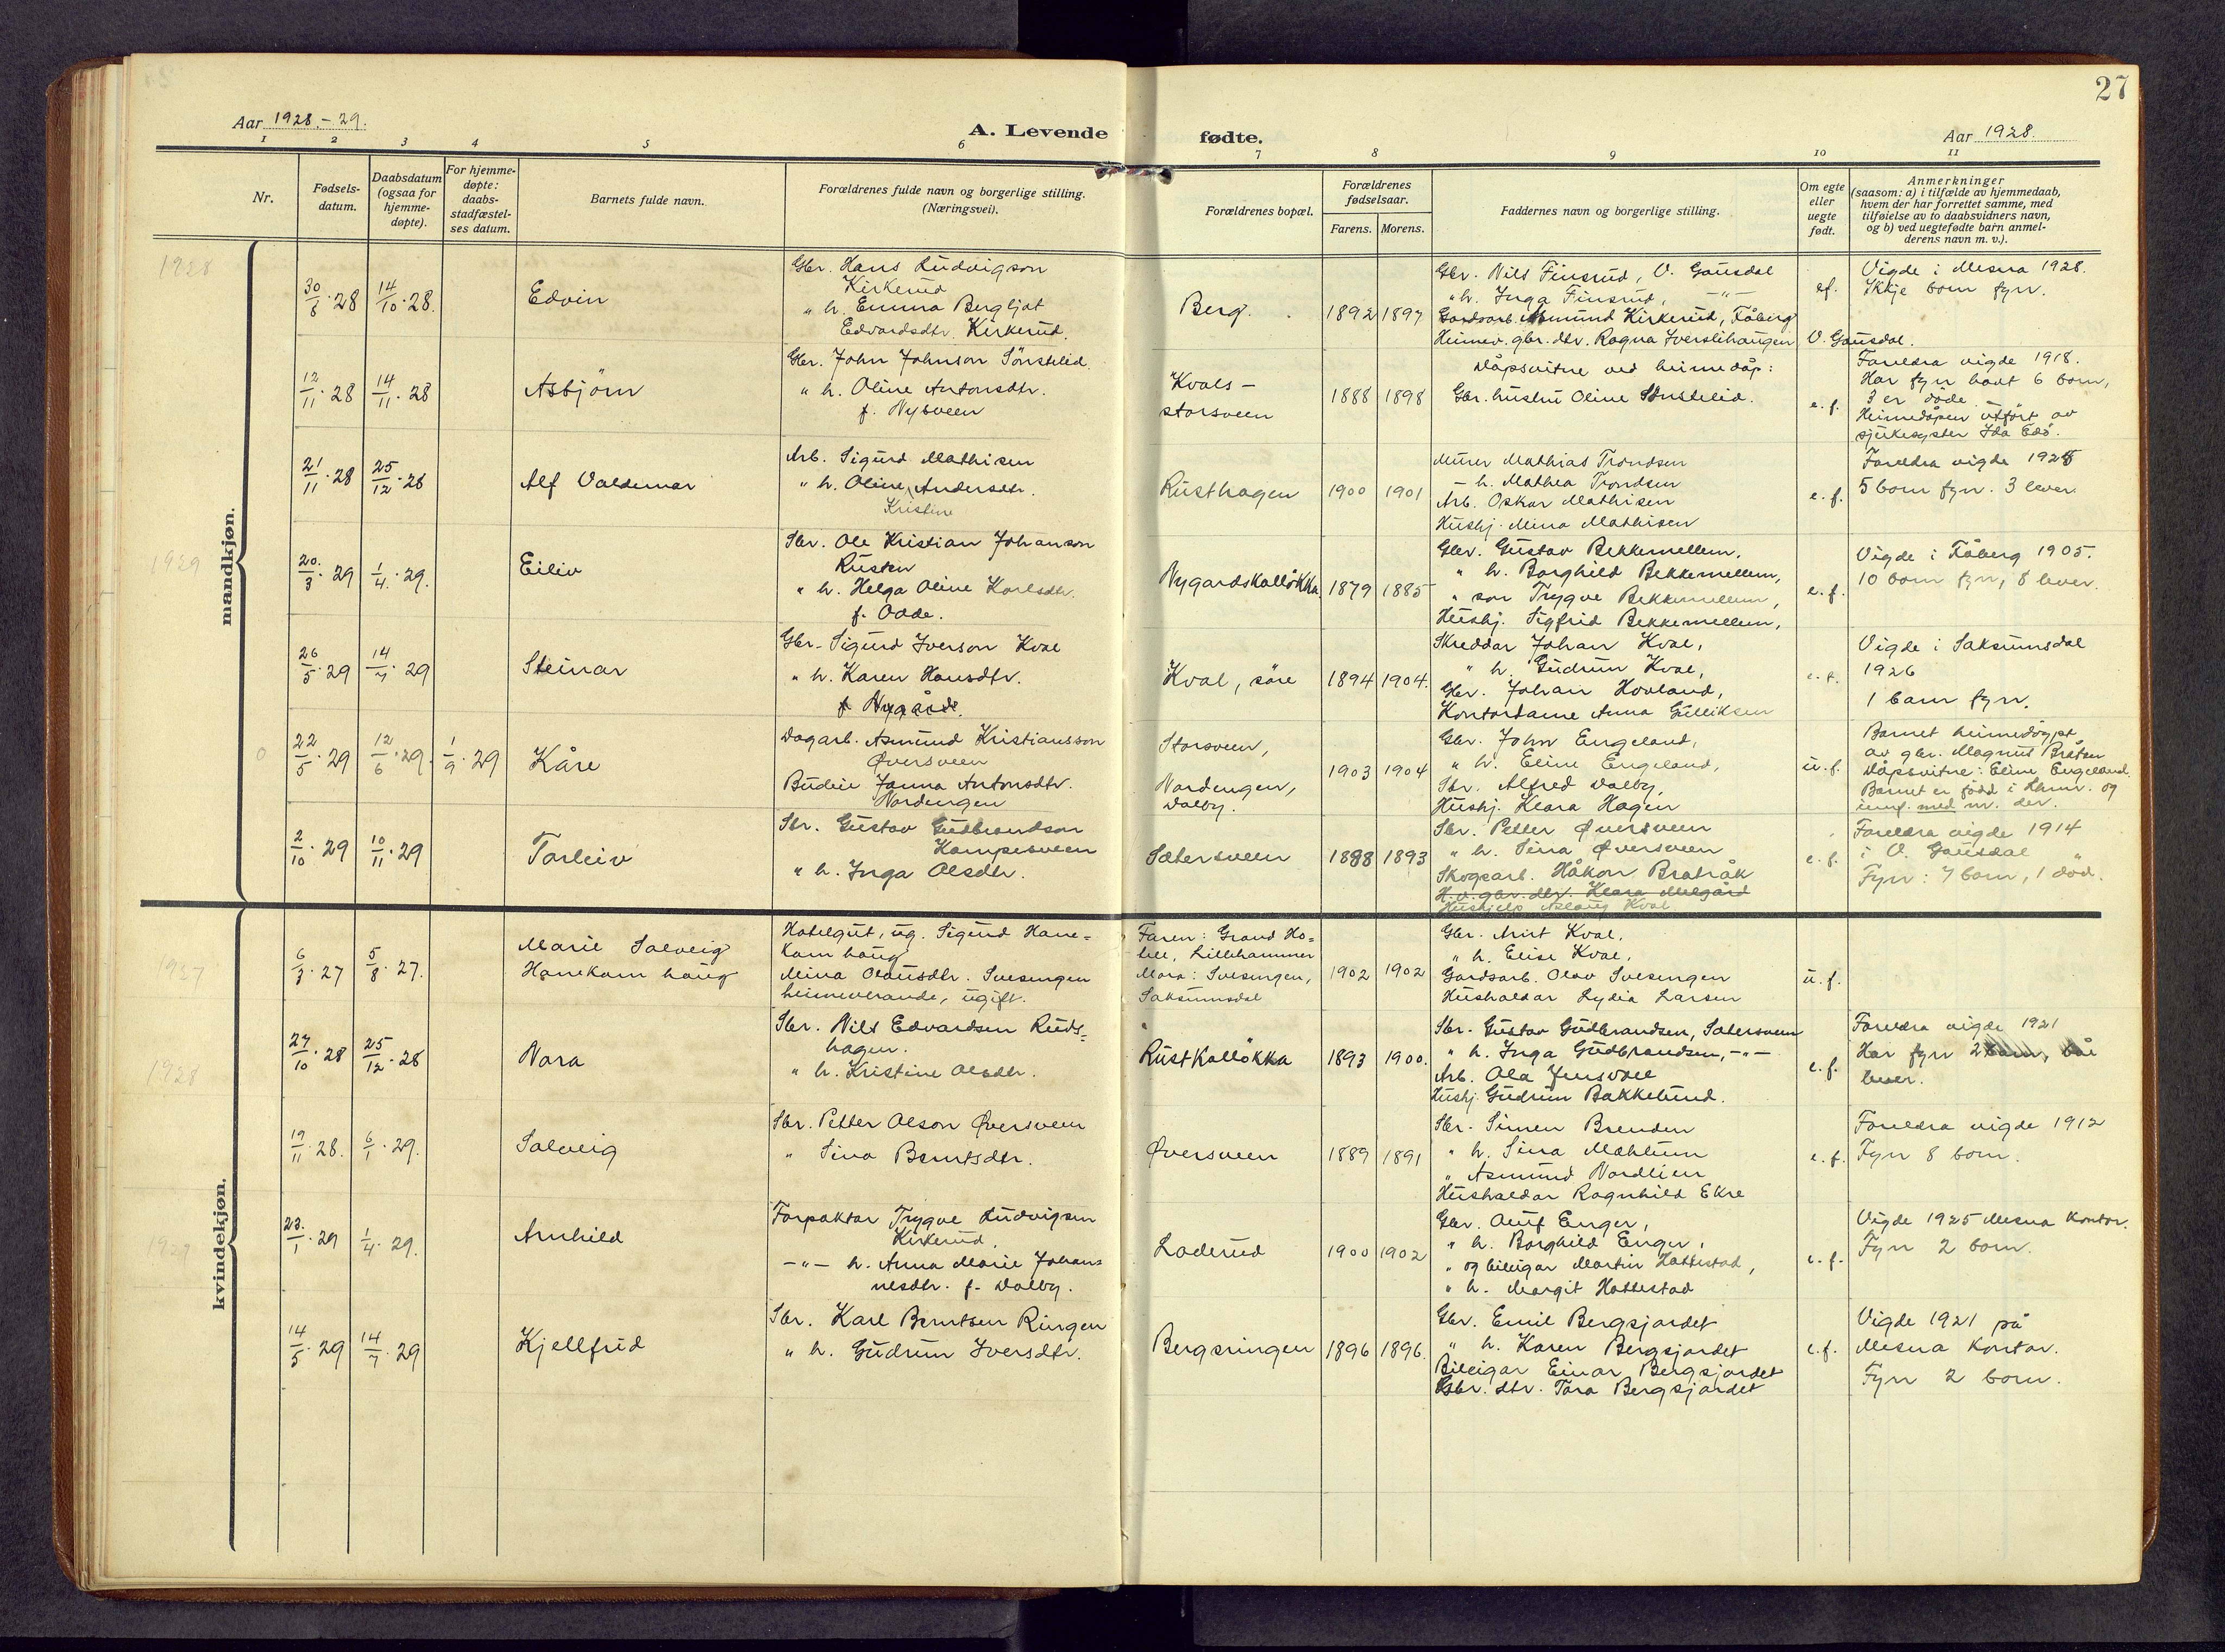 27
Aar 1928.-29.
A. Levende fødte.
Aar 1928.
1 2 3 4 5 6 7 8 9 10 11
Nr.
Fødsels-
datum.
Daabsdatum
(ogsaa for
hjemme-
døpte).
For hjemme-
døpte:
daabs-
stadfæstel-
ses datum.
Barnets fulde navn.
Forældrenes fulde navn og borgerlige stilling.
(Næringsvei).
Forældrenes bopæl.
Forældrenes
fødselsaar.
Farens. Morens.
Faddernes navn og borgerlige stilling.
Om egte
eller
uegte
født.
Anmerkninger
(saasom: a) i tilfælde av hjemmedaab,
hvem der har forrettet samme, med
tilføielse av to daabsvidners navn,
og b) ved uegtefødte barn anmel-
derens navn m. v.).
mandkjøn.
1928
30/8·28 14/10·28.
Edvin
Gbr. Hans Ludvigson
Kirkerud
" h. Emma Bergljot
Edvardsdtr. Kirkerud.
Berg.
1892 1897
Gbr. Nils Finsrud, V. Gausdal
" h. Inga Finsrud, —"—
Gardsarb. Asmund Kirkerud, Fåberg
Heimev. gbr. dtr. Ragna Iverslihaugen V. Gausdal.
ef.
Vigde i Mesna 1928.
Ikkje born fyrr.
12/11·28 14/11·28
Asbjörn
Gbr. John Johnson Sörstelid
" h. Oline Antonsdtr.
f. Nysveen
Kvals-
storsveen
1888 1898
Dåpsvitne ved heimedåp:
Gbr. hustru Oline
e. f.
Foreldra vigde 1918.
Har fyrr havt 6 born,
3 er döde
Heimedåpen utfört av
sjukesyster Ida
21/11·28 25/12·28
Alf Valdemar
Arb. Sigurd Mathisen
" h. Oline Andersdtr.
Kristine
Rusthagen
1900 1901
Murer Mathias Trondsen
— h. Mathea Trondsen
Arb. Oskar Mathisen
Hushj. Mina Mathisen
e. f.
Foreldra vigde 1925
5 born fyrr. 3 lever.
1929
20./3·29 1/4·29.
Eiliv
Sbr. Ole Kristian Johanson
Rusten
" h. Helga Oline Karlsdtr.
f. Odde.
Nygardskallökka
1879 1885
Gbr. Gustav Bekkemellem,
" h. Borghild Bekkemellem,
" son Trygve Bekkemellem,
Hushj. Sigfrid Bekkemellem,
e. f.
Vigde i Fåberg 1905.
10 born fyrr, 8 lever.
26/5·29 14/7·29
Steinar
Gbr. Sigurd Iverson Kval
" h. Karen Hansdtr.
f. Nygård.
Kval, söre
1894 1904.
Skreddar Johan Kval,
" h. Gudrun Kval,
Gbr. Johan Hovland,
Kontordame Anna Gulliksen
e. f.
Vigde i Saksumsdal
1926
1 barn fyrr.
0
22/5·29 12/6·29. 1/9·29
Kåre
Dagarb. Asmund Kristiansson
Øversveen
Budeie Janna Antonsdtr.
Nordengen
Storsveen,
Nordengen,
Dalby.
1903 1904
Gbr. John Engeland,
" h. Eline Engeland,
Sbr. Alfred Dalby,
Hushj. Klara Hagen
u. f.
Barnet heimedöypt
av gbr. Magnus Bråten
Dåpsvitne: Eline Engeland.
Barnet er född i Lhmr. og
innf. med nr. der.
2/10·29 10/11·29
Torleiv
Sbr. Gustav Gudbrandson
Kampesveen
" h. Inga Olsdtr.
Sætersveen
1888 1893
Sbr. Petter Øversveen
" h. Sina Øversveen
Skogsarb. Håkon Bratråk
H.v. gbr. dtr. Klara Melgård
Hushjelp Aslaug Kval
e. f.
Foreldra vigde 1914
i V. Gausdal
Fyrr: 7 born, 1 död.
kvindekjøn.
1927
6/3·27 5/8·27.
Marie Solveig
Hanekamhaug
Hotelgut, ug. Sigurd Hane=
kamhaug
Mina Olausdtr. Svesengen
heimeverande, ugift.
Faren: Grand Ho=
tell, Lillehammer
Mora: Svesengen,
Saksumsdal
1902 1902
Gbr. Arnt Kval,
" h. Elise Kval,
Gardsarb. Olav Svesengen
Hushaldar Lydia Larsen
u. f.
1928
27/10·28 25/12·28
Nora
Sbr. Nils Edvardsen Ruds=
hagen.
" h. Kristine Olsdtr.
Rustkallökka
1893 1900.
Sbr. Gustav Gudbrandsen, Sætersveen
" h. Inga Gudbrandsen, —"—
Arb. Ola Jensvoll
Hushj. Gudrun Bakkelund.
e. f.
Foreldra vigde 1921
Har fyrr 2 born,
lever.
17/11·28. 6/1·29.
Solveig
Sbr. Petter Olson Øversveen
" Sina Berntsdtr.
Øversveen
1889 1891
Sbr. Simen Brenden
" h. Sina Mæhlum
" Asmund Nordlien
Hushaldar Ragnhild Ekre
e. f.
Foreldra vigde 1912
Fyrr 8 born.
1929
23./1·29 1/4·29.
Arnhild
Forpaktar Trygve Ludvigsen
Kirkerud
—"— h. Anna Marie Johan=
nesdtr. f. Dalby.
Loderud
1900 1902
Gbr. Oluf Enger,
" h. Borghild Enger,
" og bileigar Martin Hattestad,
" h. Margit Hattestad
e. f.
Vigde 1925 Mesna Kontor.
Fyrr 2 born.
14/5·29 14/7·29
Kjellfrid
Sbr. Karl Berntsen Ringen
" h. Gudrun Iversdtr.
Bergsringen
1896 1896.
Gbr. Emil Bergsjordet
" h. Karen Bergsjordet
Bileigar Einar Bergsjordet
Gbr. dtr. Tora Bergsjordet
e. f.
Vigde 1921 på
Mesna Kontor.
Fyrr 2 born.